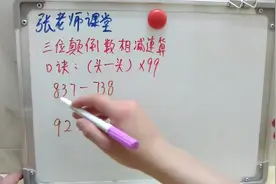 张老师课堂
三位颠倒数相减速算
口诀：(头一头)×99
837-738
92